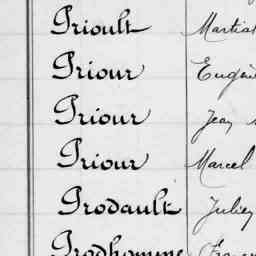 Prioult Martial
Priour Eugèn
Priour Jean
Priour Marcel
Prodault Julien
Prodhomme